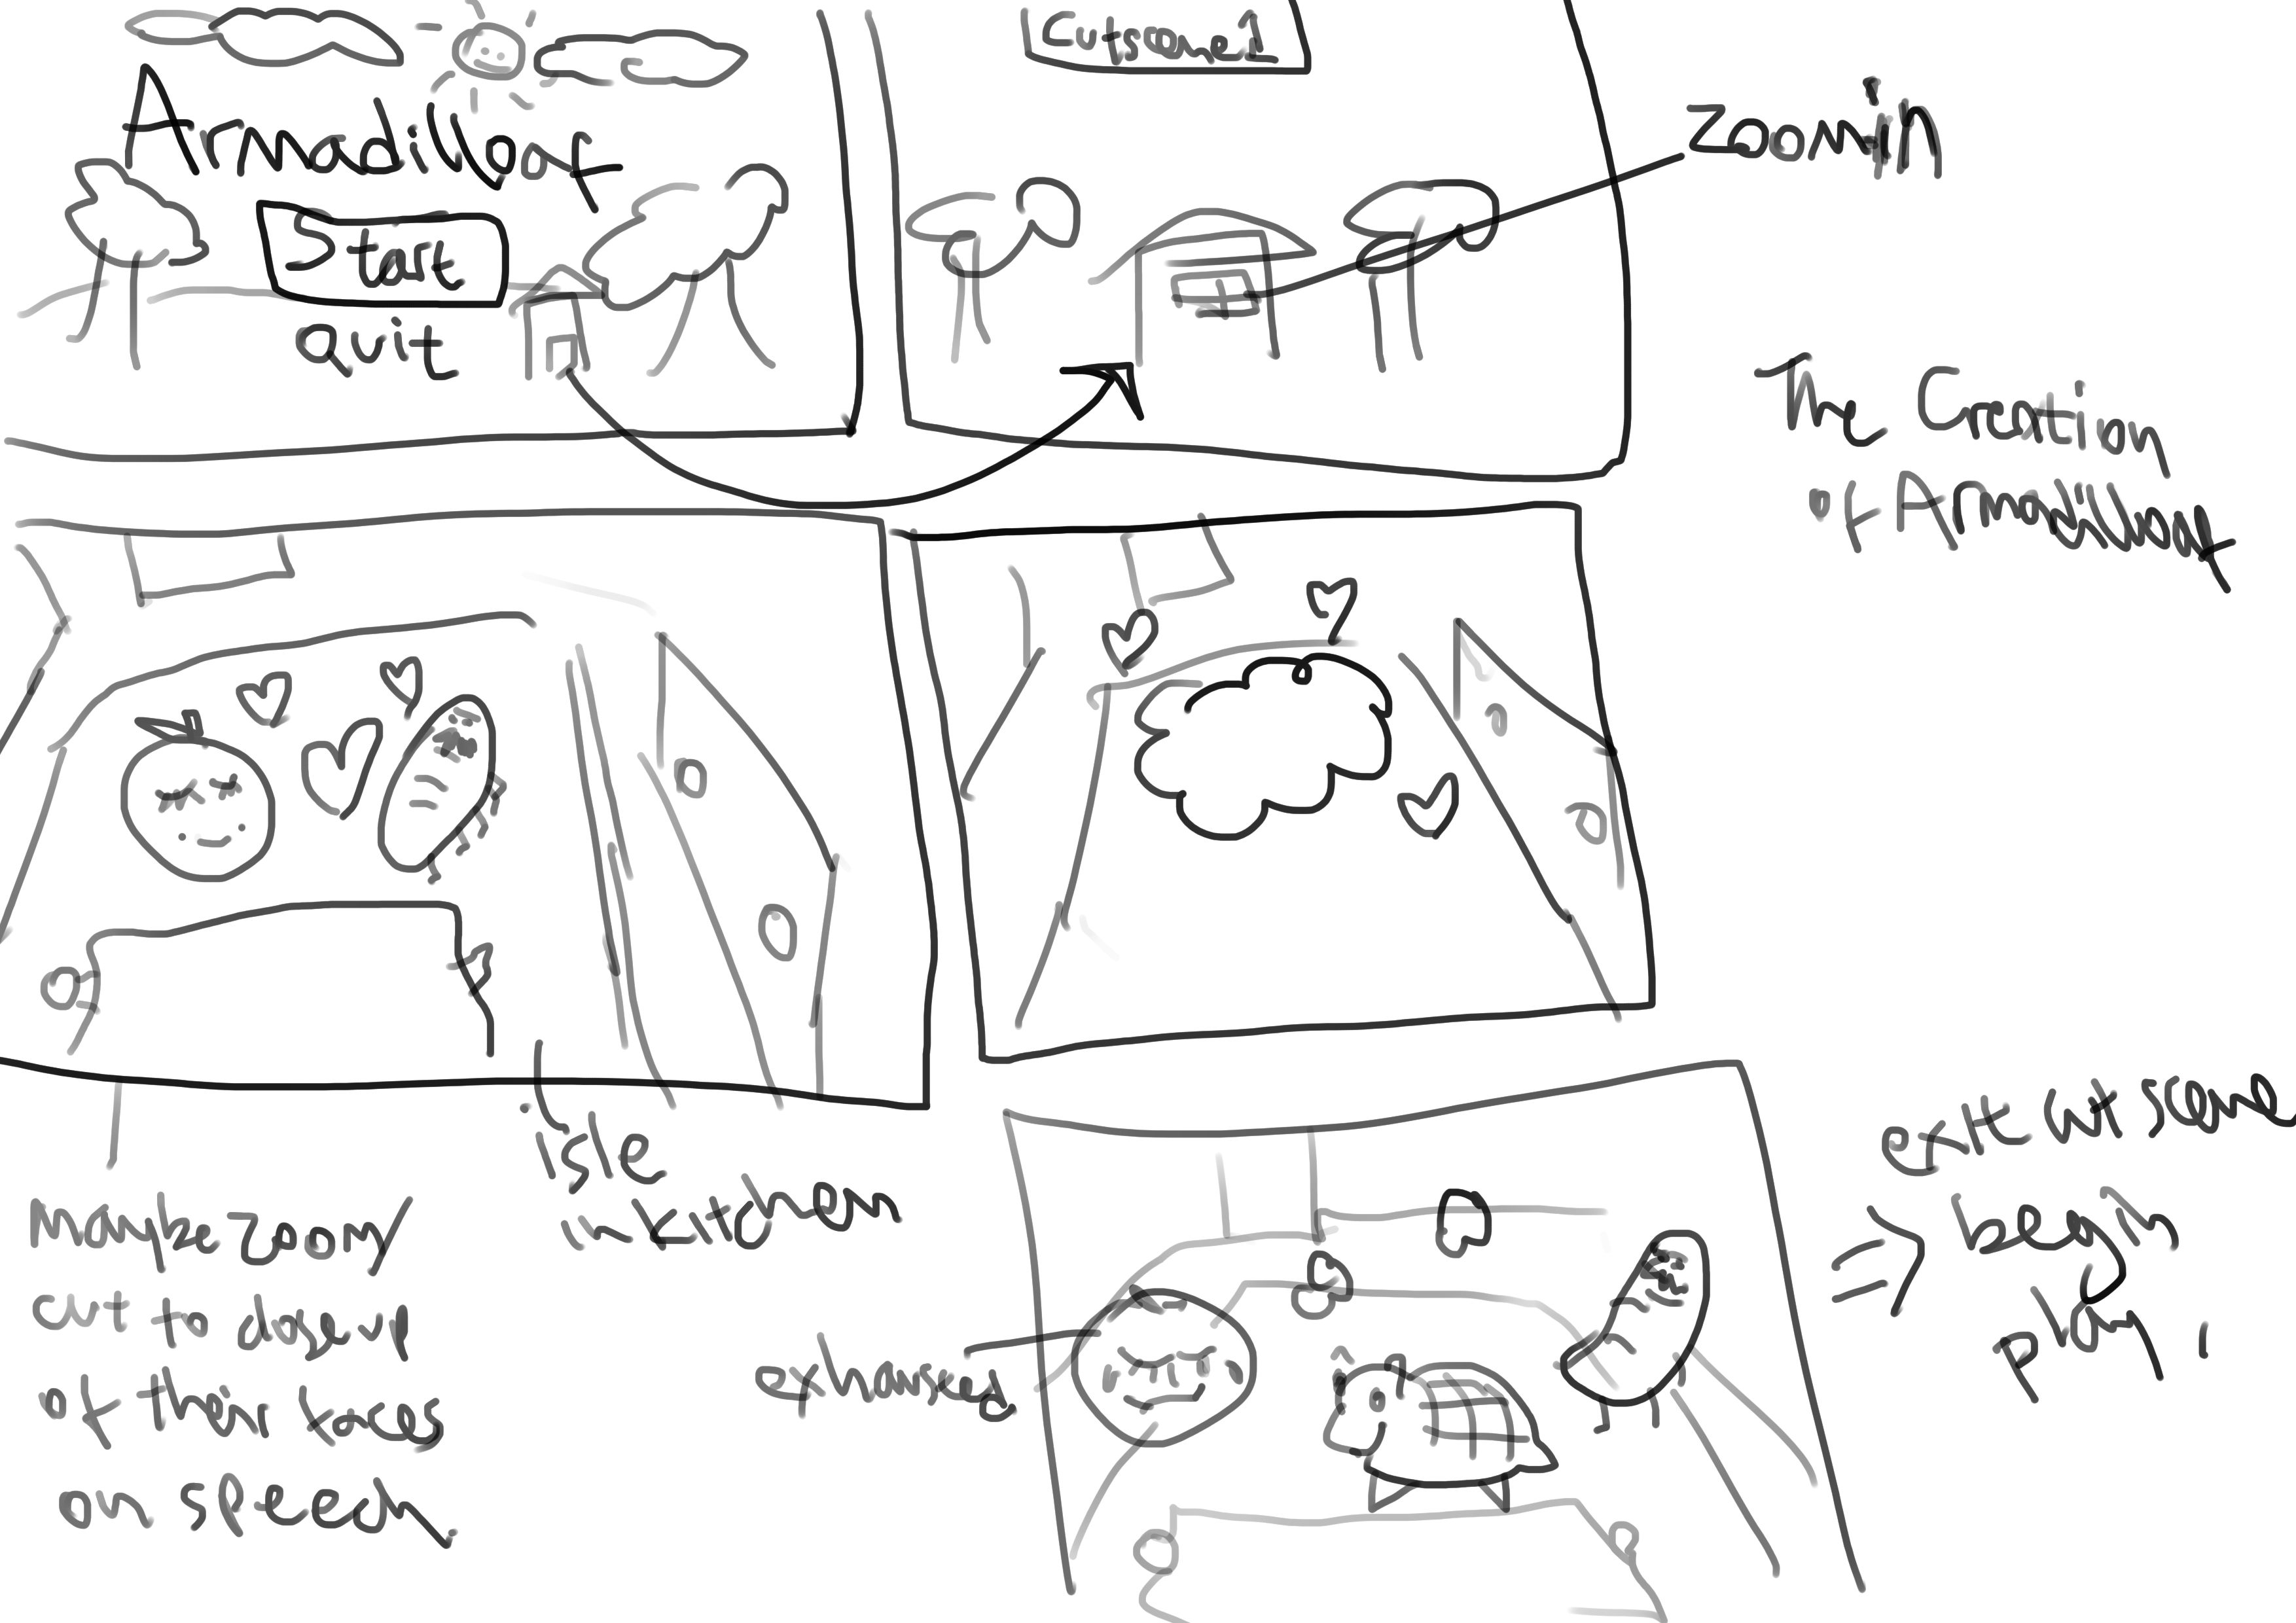 Armadilloaf
Start
Quit
Cutscene 1
zoom in
The Creation
of Armadilloaf
isle
in kitchen
Maybe zoom/
cut to closeup
of their faces
on speech
exhausted
exit cutscene
=> begin
play!